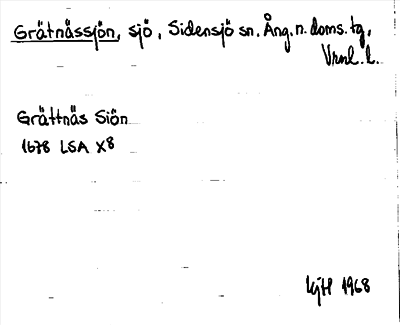 Grätnässjön, sjö, Sidensjö sn. Ång. n. doms. tg,
Vrnl. l.
Grättnäs Siön
1678 LSA X8
KjH 1968